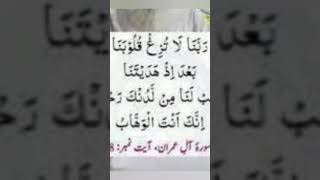 رَبَّنَا لَا تُزِغْ قُلُوْبَنَا
بَعْدَ اِذْ هَدَيْتَنَا
بْ لَنَا مِنْ لَّدُنْكَ رَحْ
اِنَّكَ اَنْتَ الْوَهَّابُ
سورۃ آلِ عمران، آیت نمبر: 8